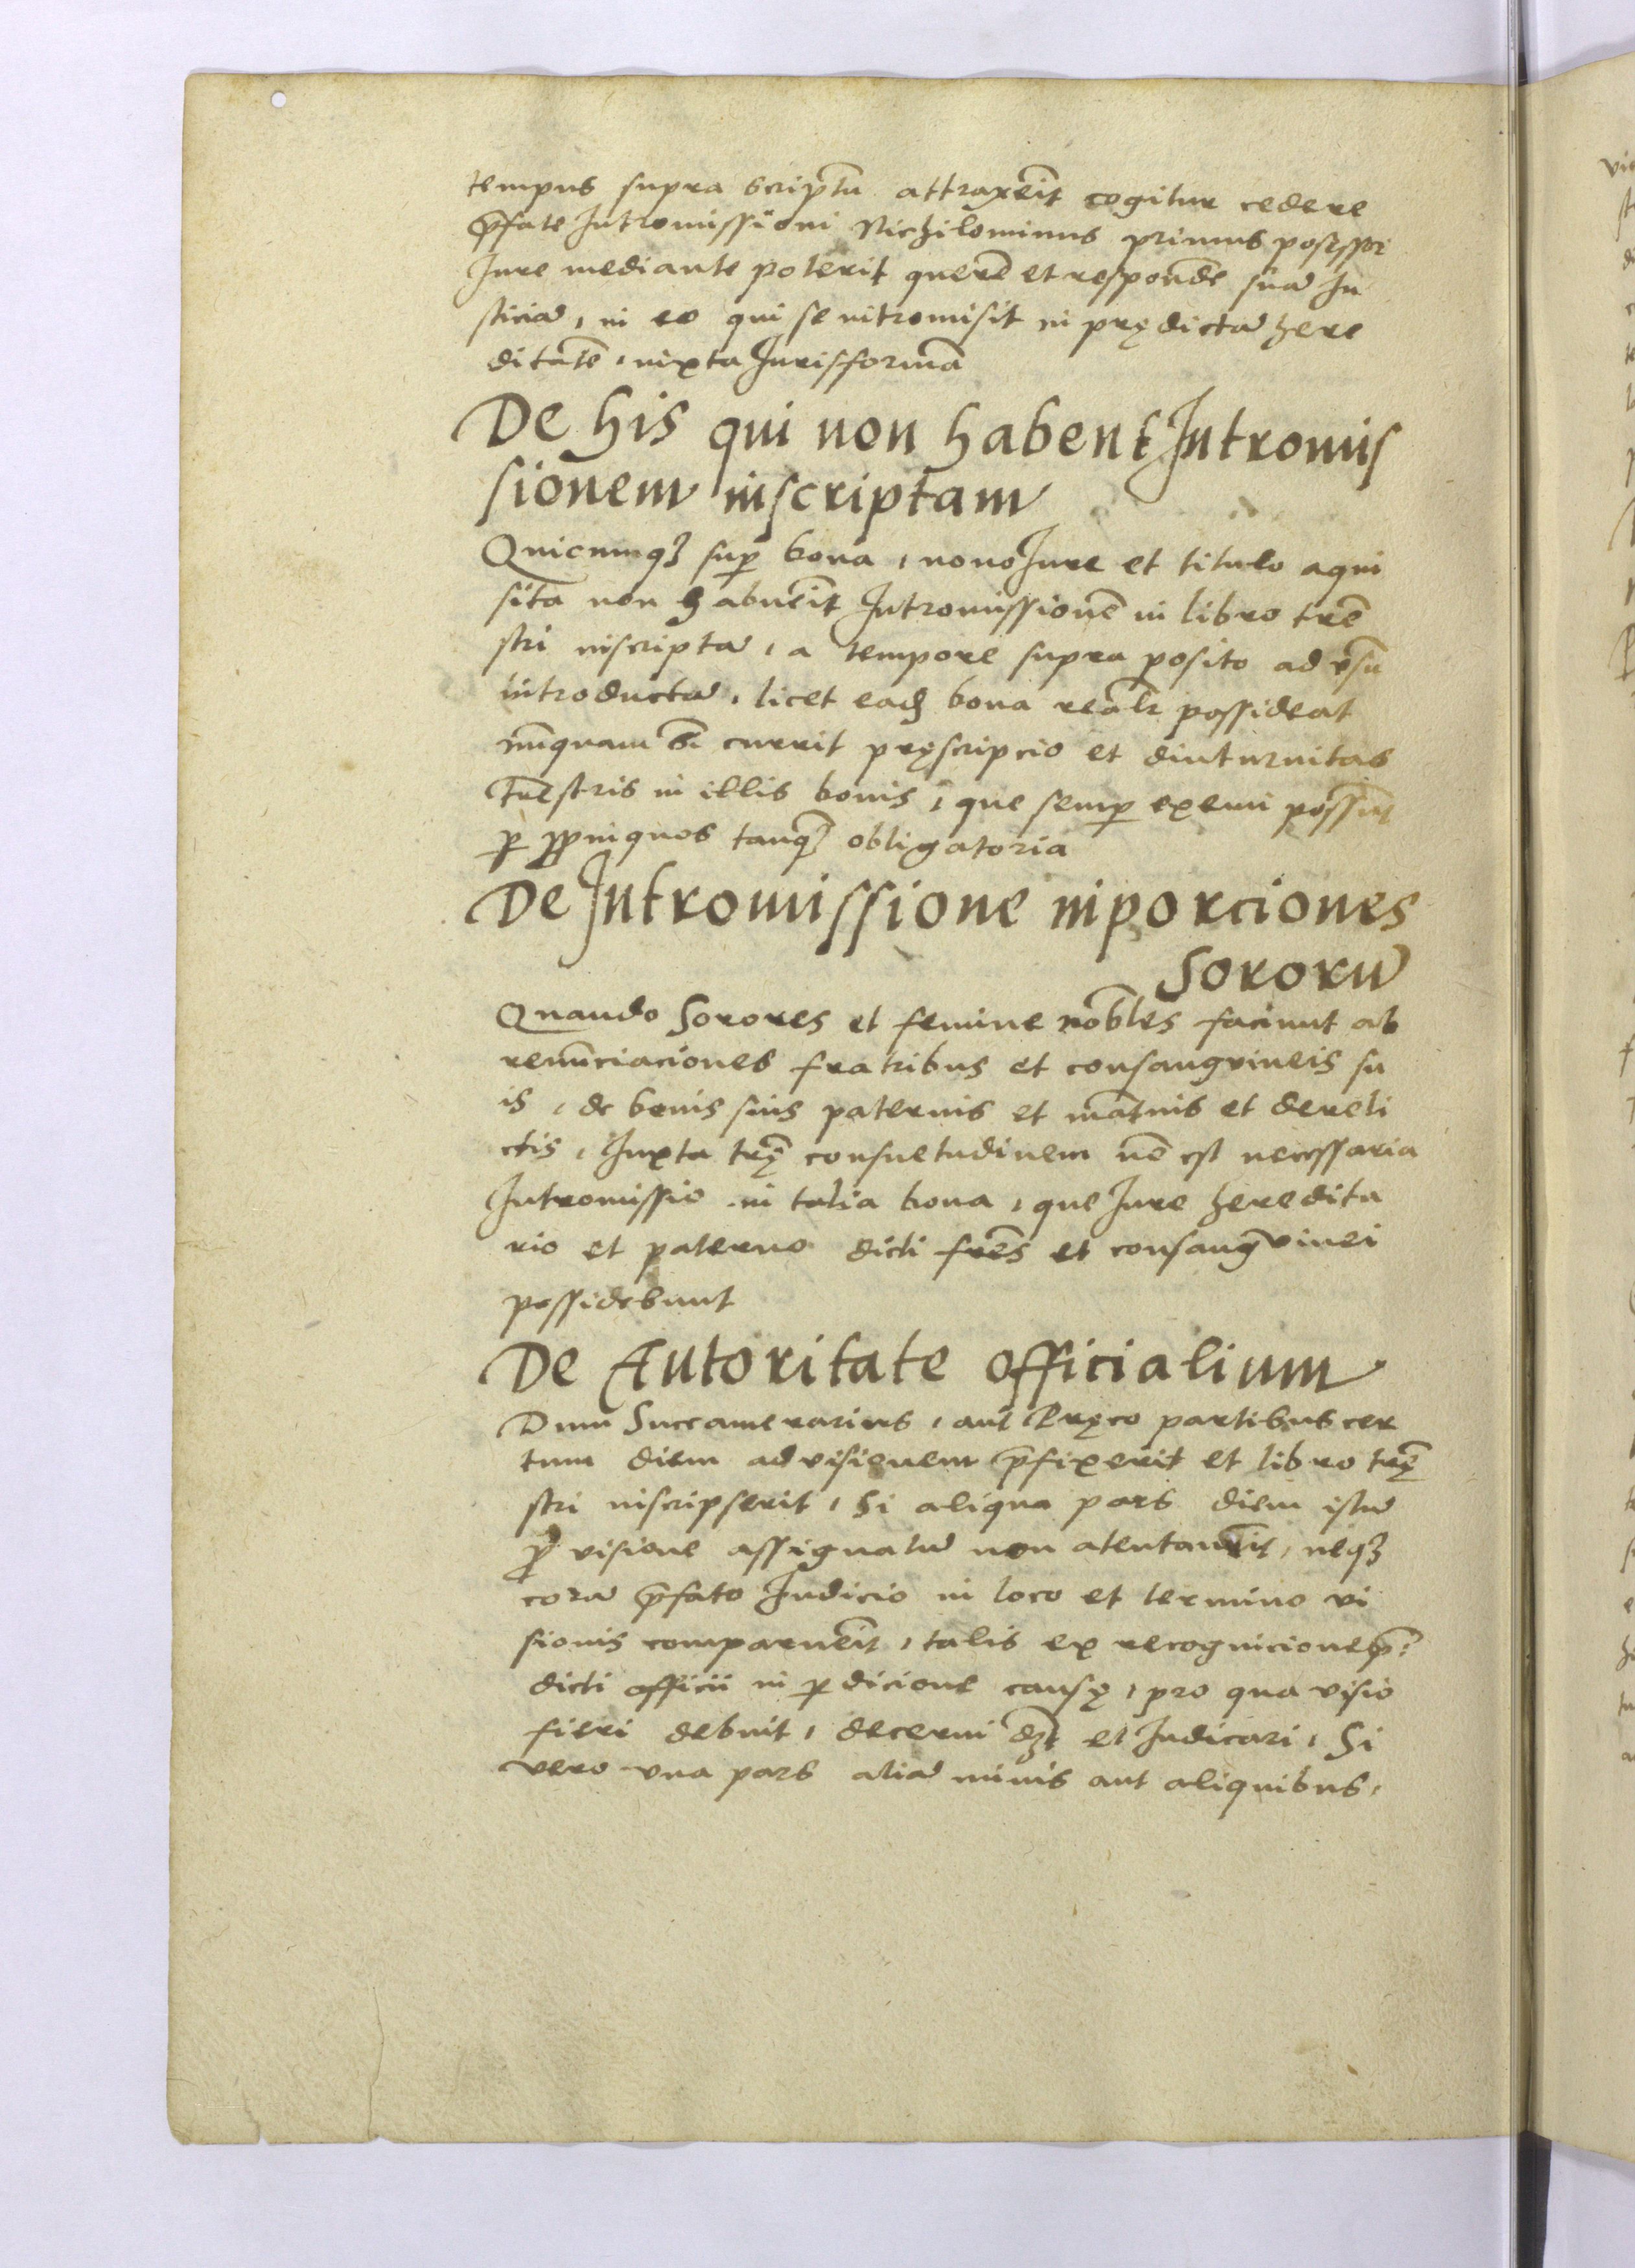 tempus supra scriptū attraxeīt cogitur cedere
p̄fate Intromissioni Nichilominus primus posessor
Iure mediante poterit querē et respondē suā Iu
sticiā, in eo qui se intromisit in prędictā here
ditatē, iuxta Iurisformā
De his qui non habent Intromis
sionem inscriptam
Quicumqꝫ sup̄ bona, nono Iure et titulo aqui
sita non habueīt Intromissionē in libro trē
stri inscriptā, a tempore supra posito ad
introductā, licet eadꝫ bona realr̄ possideat
nūquam currit pręscripcio et diuturnitas
trēstris in illis bonis, que semp̄ exemi possūt
ꝑ ꝓpinquos tanqꝫ obligatoria
De Intromissione in porciones
Sororū
Quando Sorores et femine nobles faciunt ab
renūciaciones fratribus et consangvineis su
is, de bonis suis paternis et mat̄nis et dereli
ctis, Iuxta trę̄ consuetudinem nō est necessaria
Intromissio in talia bona, que Iure heredita
rio et paterno dicti frēs et consangvinei
possidebunt
De Autoritate officialium
Dum Succamerarius, aut Pręco partibus cer
tum diem ad visionem p̄fixerit et libro trę̄
stri inscripserit, Si aliqua pars diem istū
ꝓ visione assignatū non atentaueīt, neqꝫ
corā p̄fato Iudicio in loco et termino vi
sionis comparueīt, talis ex recognicione p̄:
dicti officii in ꝑdicione causę, pro qua visio
fieri debuit, decerni dꝫt et Iudicari, Si
vero vna pars aliā minis aut aliquibus,